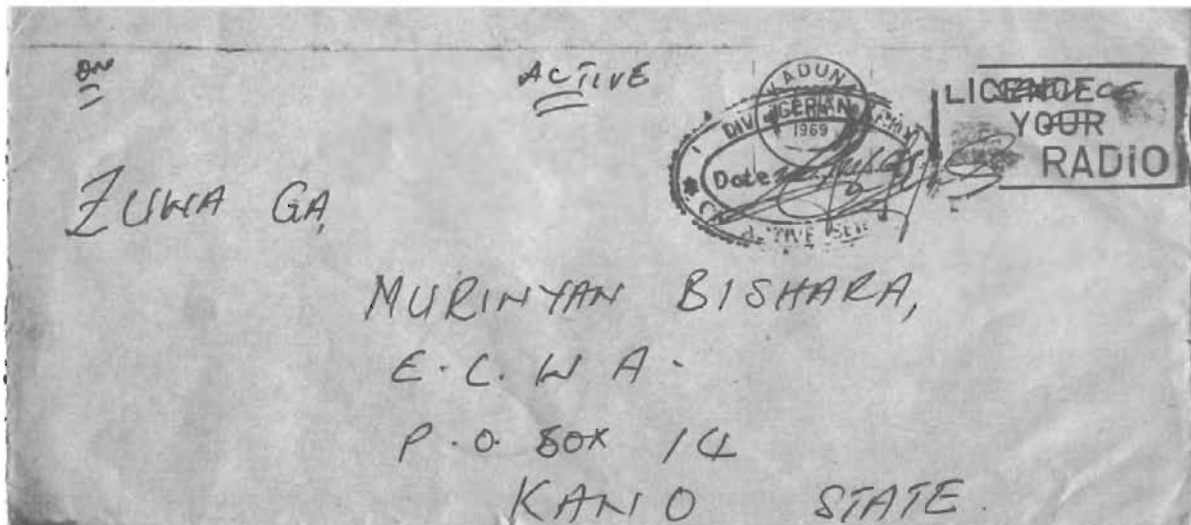 ON ACTIVE
KADUNA
1969
1 DIV NIGERIAN ARMY
Date
ACTIVE SER
LICENCE
YOUR
RADIO
ZUWA GA,
MURINYAN BISHARA,
E.C.W A.
P.O. BOX 14
KANO STATE.